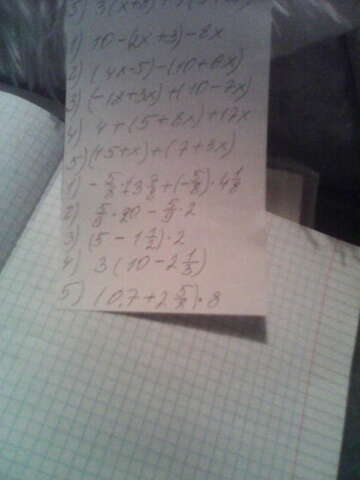 5) 3(x+8)
1) 10-(2x+3)-8x
2) (4x-5)-(10+6x)
3) (-1x+3x)+(10-7x)
4) 4+(5+8x)+17x
5) (15+x)+(7+3x)
1) -5/8·13 7/8+(-5/8)·4 1/8
2) 5/9·20-5/9·2
3) (5-1 1/2)·2
4) 3(10-2 1/3)
5) (0,7+2 5/8)·8